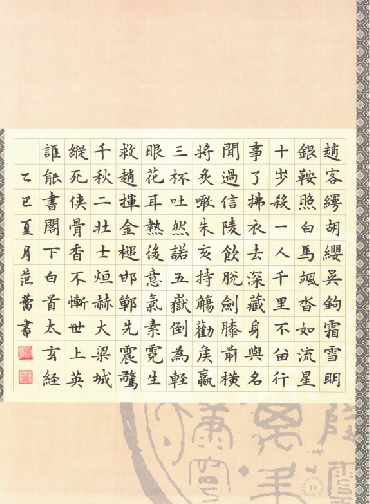 趙客縵胡纓吳鉤霜雪明
銀鞍照白馬颯沓如流星
十步殺一人千里不留行
事了拂衣去深藏身與名
閒過信陵飲脫劍膝前橫
將炙啖朱亥持觴勸侯嬴
三杯吐然諾五嶽倒為輕
眼花耳熱後意氣素霓生
救趙揮金槌邯鄲先震驚
千秋二壯士烜赫大梁城
縱死俠骨香不慚世上英
誰能書閣下白首太玄經
乙巳夏月范書